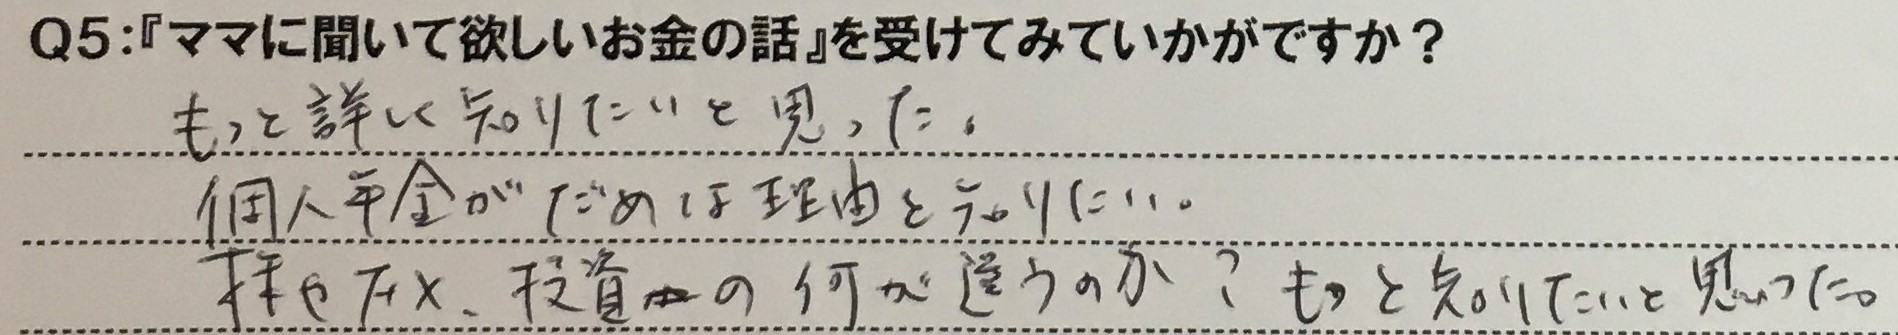 Q5:『ママに聞いて欲しいお金の話』を受けてみていかがですか?
もっと詳しく知りたいと思った。
個人年金がだめな理由を知りたい。
株やFX、投資の何が違うのか?もっと知りたいと思った。